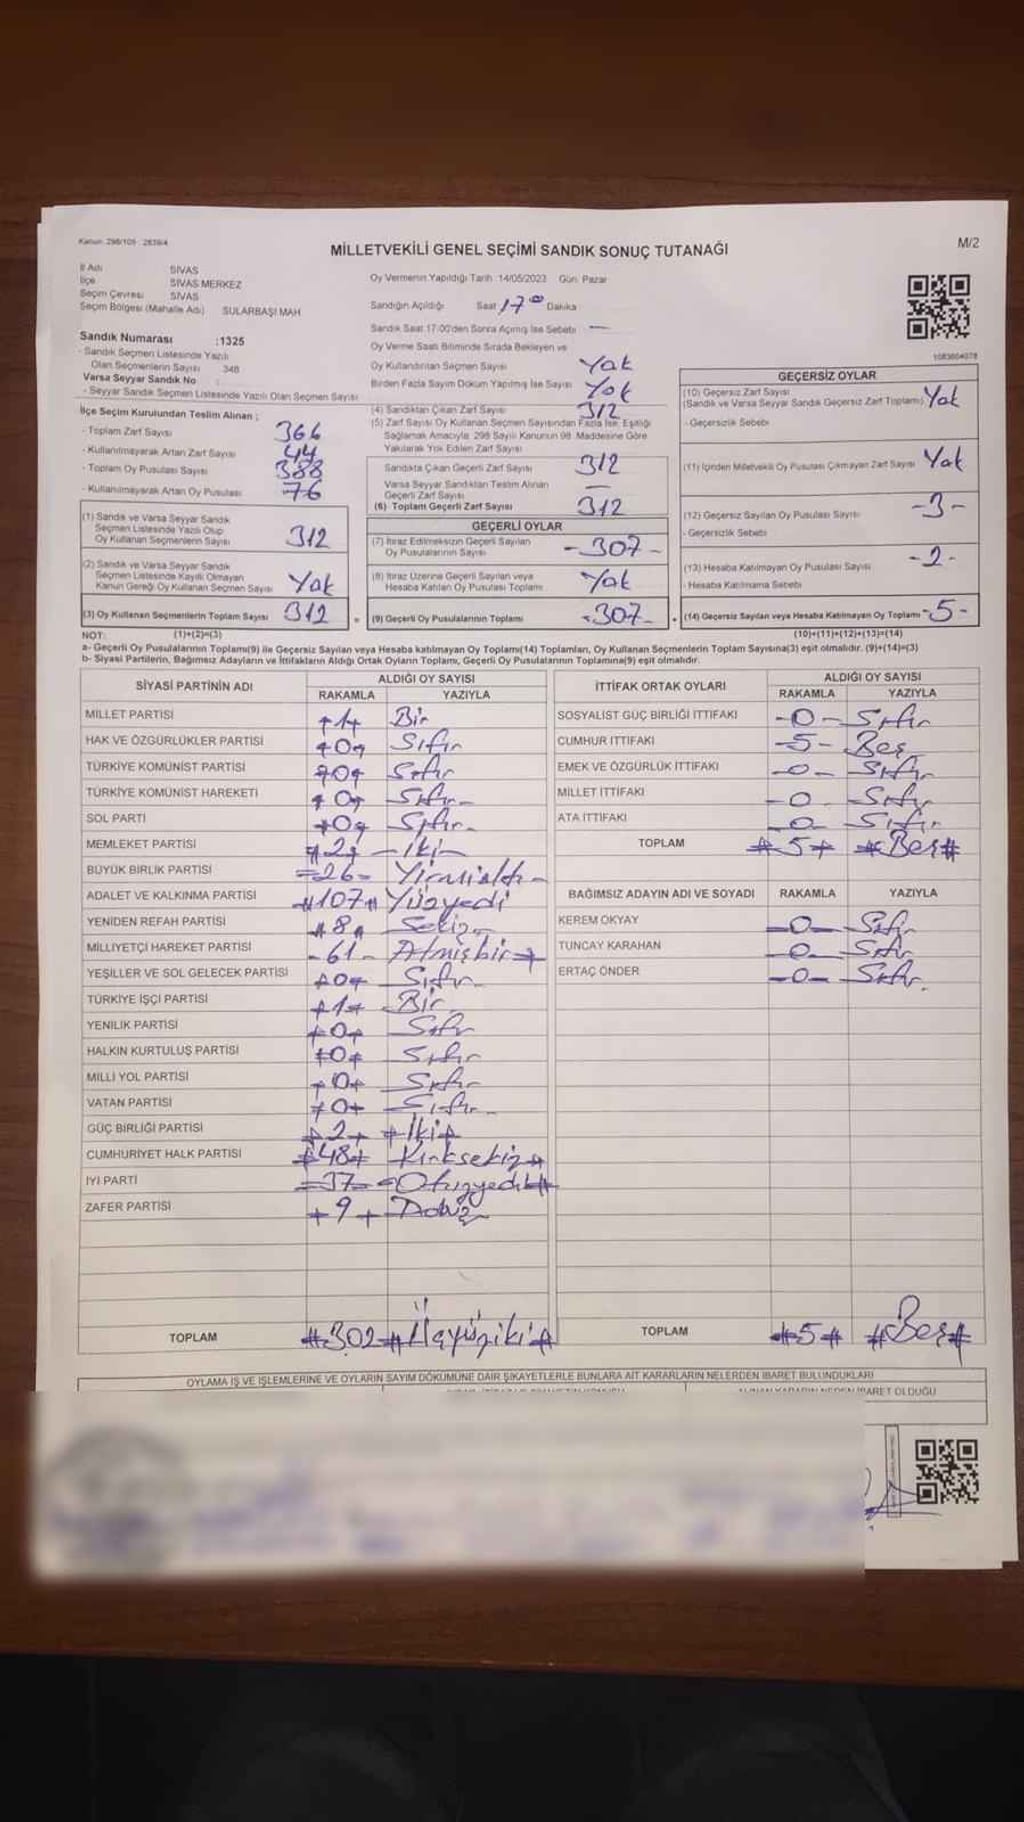 Kanun: 298/105 - 2839/4
MİLLETVEKİLİ GENEL SEÇİMİ SANDIK SONUÇ TUTANAĞI
M/2
İl Adı SİVAS
İlçe SİVAS MERKEZ
Seçim Çevresi SİVAS
Seçim Bölgesi (Mahalle Adı) SULARBAŞI MAH
Oy Vermenin Yapıldığı Tarih :14/05/2023 Gün: Pazar
Sandığın Açıldığı Saat 17 00 Dakika
Sandık Saat 17:00'den Sonra Açmış İse Sebebi —
Oy Verme Saati Bitiminde Sırada Bekleyen ve
Oy Kullandırılan Seçmen Sayısı Yok
Birden Fazla Sayım Döküm Yapılmış İse Sayısı Yok
Sandık Numarası :1325
- Sandık Seçmen Listesinde Yazılı
Olan Seçmenlerin Sayısı 348
Varsa Seyyar Sandık No :
- Seyyar Sandık Seçmen Listesinde Yazılı Olan Seçmen Sayısı
İlçe Seçim Kurulundan Teslim Alınan ;
- Toplam Zarf Sayısı 366
- Kullanılmayarak Artan Zarf Sayısı 44
- Toplam Oy Pusulası Sayısı 388
- Kullanılmayarak Artan Oy Pusulası 76
(1) Sandık ve Varsa Seyyar Sandık
Seçmen Listesinde Yazılı Olup
Oy Kullanan Seçmenlerin Sayısı 312
(2) Sandık ve Varsa Seyyar Sandık
Seçmen Listesinde Kayıtlı Olmayan
Kanun Gereği Oy Kullanan Seçmen Sayısı Yok
(3) Oy Kullanan Seçmenlerin Toplam Sayısı 312
(4) Sandıktan Çıkan Zarf Sayısı 312
(5) Zarf Sayısı Oy Kullanan Seçmen Sayısından Fazla İse, Eşitliği
Sağlamak Amacıyla, 298 Sayılı Kanunun 98. Maddesine Göre
Yakılarak Yok Edilen Zarf Sayısı
Sandıkta Çıkan Geçerli Zarf Sayısı 312
Varsa Seyyar Sandıktan Teslim Alınan
Geçerli Zarf Sayısı —
(6) Toplam Geçerli Zarf Sayısı 312
GEÇERLİ OYLAR
(7) İtiraz Edilmeksizin Geçerli Sayılan
Oy Pusulalarının Sayısı -307-
(8) İtiraz Üzerine Geçerli Sayılan veya
Hesaba Katılan Oy Pusulası Toplamı Yok
(9) Geçerli Oy Pusulalarının Toplamı -307-
1083604078
GEÇERSİZ OYLAR
(10) Geçersiz Zarf Sayısı
(Sandık ve Varsa Seyyar Sandık Geçersiz Zarf Toplamı) Yok
- Geçersizlik Sebebi
(11) İçinden Milletvekili Oy Pusulası Çıkmayan Zarf Sayısı Yok
(12) Geçersiz Sayılan Oy Pusulası Sayısı -3-
- Geçersizlik Sebebi
(13) Hesaba Katılmayan Oy Pusulası Sayısı -2-
- Hesaba Katılmama Sebebi
(14) Geçersiz Sayılan veya Hesaba Katılmayan Oy Toplamı -5-
NOT: (1)+(2)=(3) (10)+(11)+(12)+(13)=(14)
a- Geçerli Oy Pusulalarının Toplamı(9) ile Geçersiz Sayılan veya Hesaba katılmayan Oy Toplamı(14) Toplamları, Oy Kullanan Seçmenlerin Toplam Sayısına(3) eşit olmalıdır. (9)+(14)=(3)
b- Siyasi Partilerin, Bağımsız Adayların ve İttifakların Aldığı Ortak Oyların Toplamı, Geçerli Oy Pusulalarının Toplamına(9) eşit olmalıdır.
SİYASİ PARTİNİN ADI ALDIĞI OY SAYISI
RAKAMLA YAZIYLA
MİLLET PARTİSİ 1 Bir
HAK VE ÖZGÜRLÜKLER PARTİSİ 0 Sıfır
TÜRKİYE KOMÜNİST PARTİSİ 0 Sıfır
TÜRKİYE KOMÜNİST HAREKETİ 0 Sıfır
SOL PARTİ 0 Sıfır
MEMLEKET PARTİSİ 2 İki
BÜYÜK BİRLİK PARTİSİ =26= Yirmialtı
ADALET VE KALKINMA PARTİSİ #107# Yüzyedi
YENİDEN REFAH PARTİSİ 8 Sekiz
MİLLİYETÇİ HAREKET PARTİSİ -61- Atmışbir
YEŞİLLER VE SOL GELECEK PARTİSİ 0 Sıfır
TÜRKİYE İŞÇİ PARTİSİ 1 Bir
YENİLİK PARTİSİ 0 Sıfır
HALKIN KURTULUŞ PARTİSİ 0 Sıfır
MİLLİ YOL PARTİSİ 0 Sıfır
VATAN PARTİSİ 0 Sıfır
GÜÇ BİRLİĞİ PARTİSİ 2 İki
CUMHURİYET HALK PARTİSİ 48 Kırksekiz
İYİ PARTİ =37= Otuzyedi
ZAFER PARTİSİ + 9 + Dokuz
TOPLAM #302# Üçyüziki
İTTİFAK ORTAK OYLARI ALDIĞI OY SAYISI
RAKAMLA YAZIYLA
SOSYALİST GÜÇ BİRLİĞİ İTTİFAKI -0- Sıfır
CUMHUR İTTİFAKI -5- Beş
EMEK VE ÖZGÜRLÜK İTTİFAKI -0- Sıfır
MİLLET İTTİFAKI -0 Sıfır
ATA İTTİFAKI -0- Sıfır
TOPLAM #5# #Beş#
BAĞIMSIZ ADAYIN ADI VE SOYADI RAKAMLA YAZIYLA
KEREM OKYAY -0- Sıfır
TUNCAY KARAHAN -0- Sıfır
ERTAÇ ÖNDER -0- Sıfır.
TOPLAM #5# #Beş#
OYLAMA İŞ VE İŞLEMLERİNE VE OYLARIN SAYIM DÖKÜMÜNE DAİR ŞİKAYETLERLE BUNLARA AİT KARARLARIN NELERDEN İBARET BULUNDUKLARI